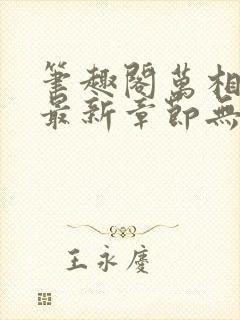 筆趣閣萬相
最新章節無
王永慶